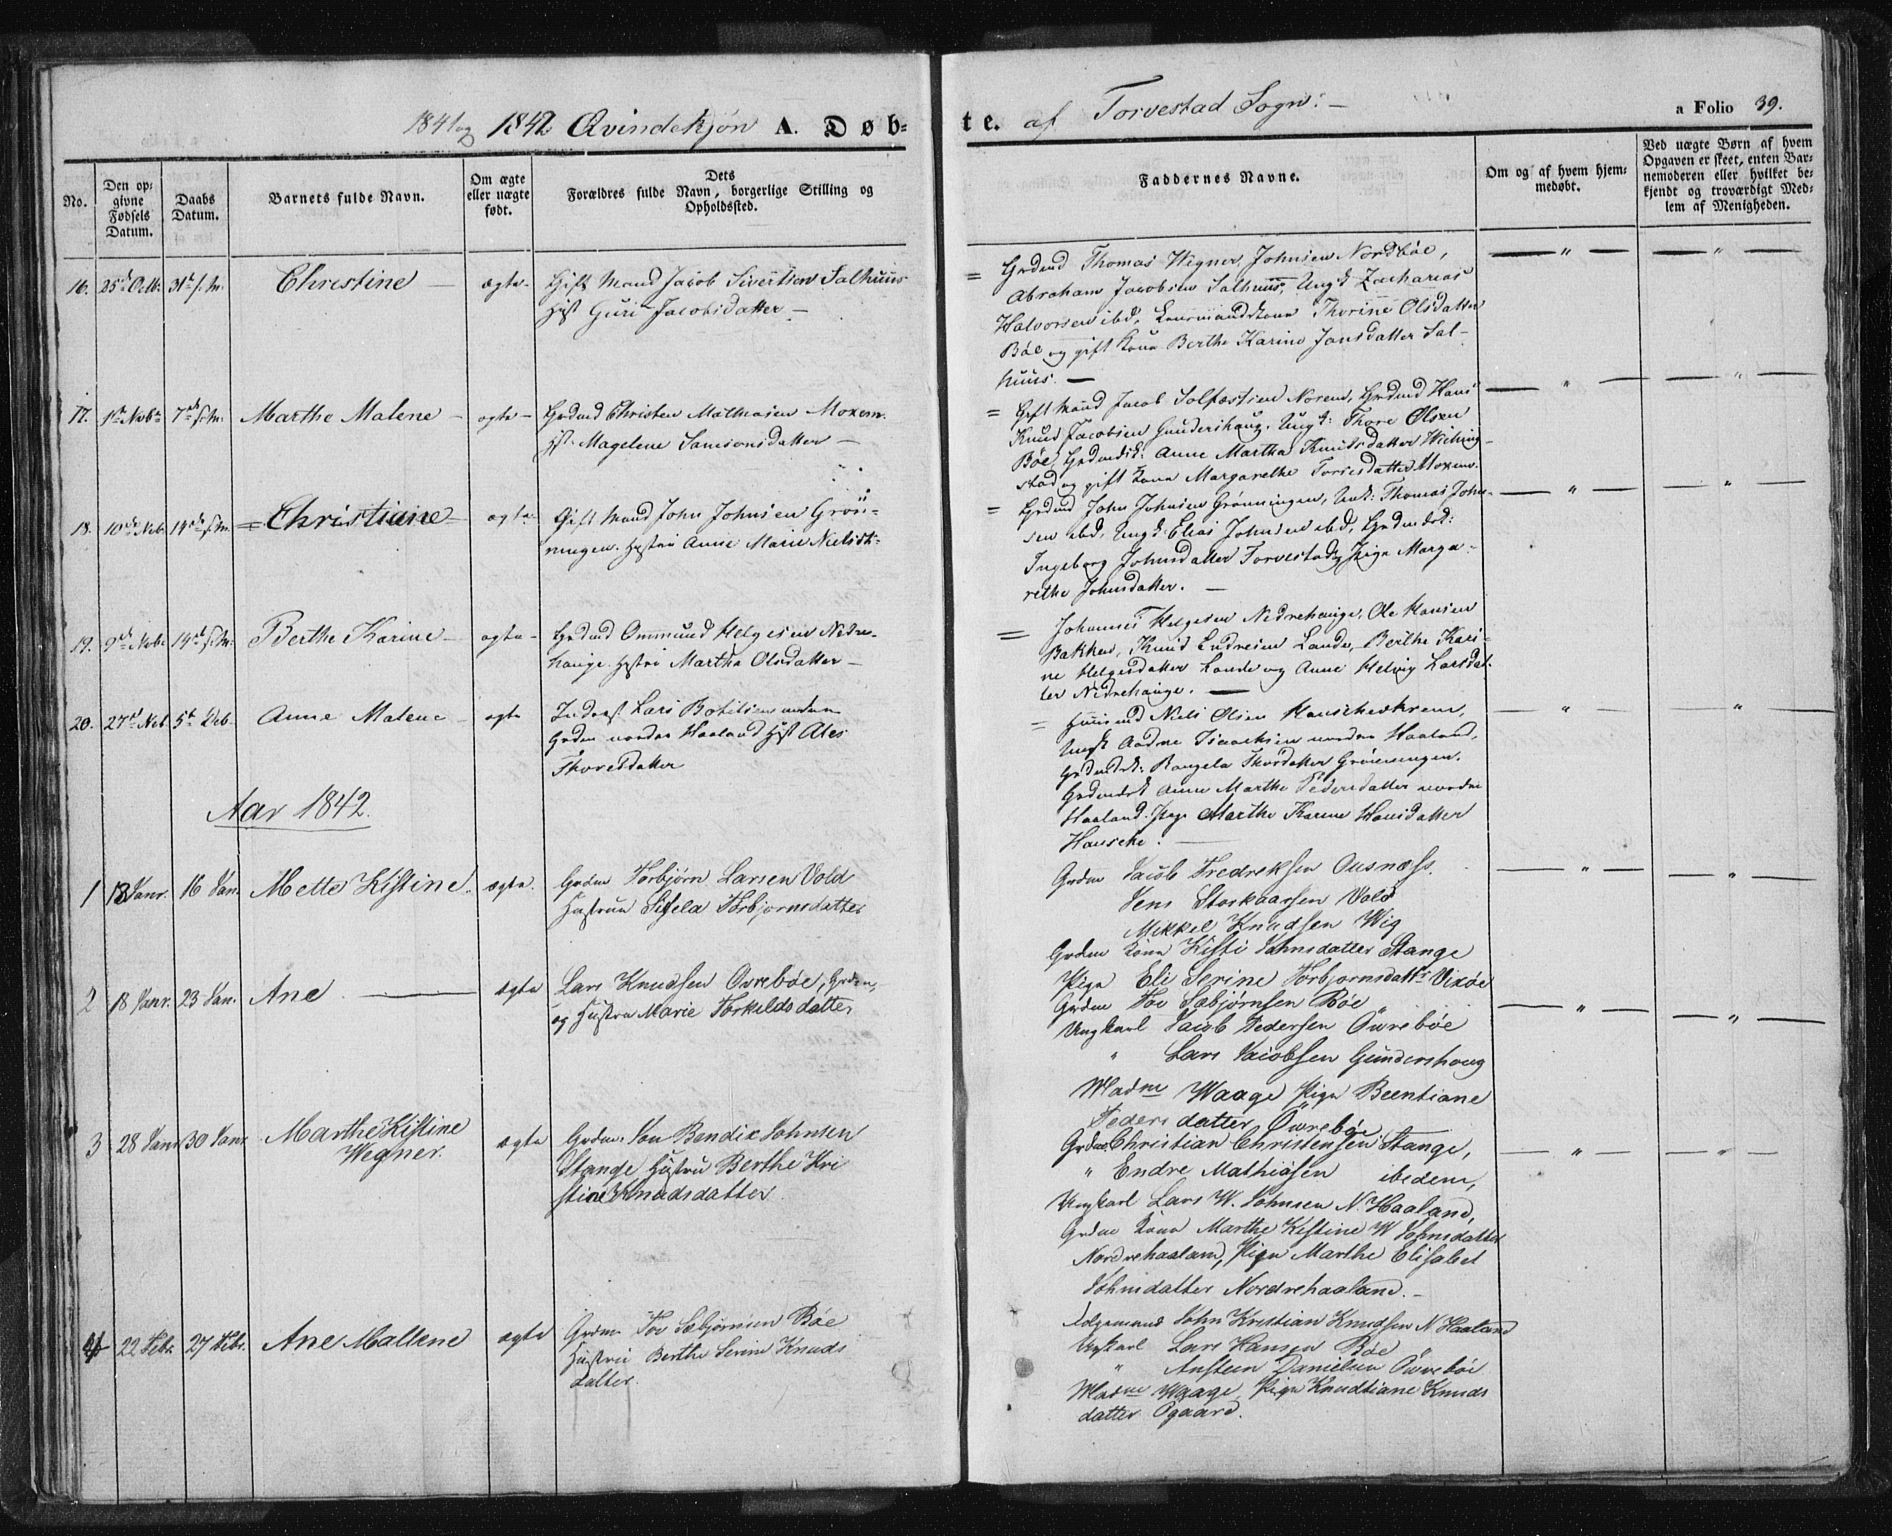 1841 og 1842 Qvindekjøn A. Døb-
te. af Torvestad Sogn.
a Folio 39.
No.
Den op-
givne
Fødsels
Datum.
Daabs
Datum.
Barnets fulde Navn.
Om ægte
eller uægte
født.
Dets
Forældres fulde Navn, borgerlige Stilling og
Opholdssted.
Faddernes Navne.
Om og af hvem hjem-
medøbt.
Ved uægte Børn af hvem
Opgaven er skeet, enten Bar-
nemoderen eller hvilket be-
kjendt og troværdigt Med-
lem af Menigheden.
16. 25de Octb. 31te s.M. Christine – ægte –
Gift Mand Jacob Sivertsen Salhuus
Hust Guri Jacobsdatter –
= Grdmd Thomas Wegner Johnsen Nordbøe,
Abraham Jacobsen Salhuus, Ungk Zacharias
Halvorsen ibd, Thorine Olsdatter
Bøe og gift Kone Berthe Karine Jansdatter Sal-
huus. –
17. 1te Novbr 7de s.M. Marthe Malene – ægte –
Grdmd Christen Mathiasen Moxem.
Hst. Magelene Samsonsdatter –
= Gift Mand Jacob Solfæstsen Norem, Grdmd Hans
Knud Jacobsen Gundershaug. Ungk: Thore Olsen
Bøe, Anne Martha Knudsdatter Wiching-
stad og gift Kone Margarethe Torresdatter Moxem.
18. 10de Nvb. 14de s.M. = Christiane – ægte –
Gift Mand John Johnsen Grøn-
ningen. Hustru Anne Marie Nielsdt:
= Grdmd John Johnsen Grønningen, Unk: Thomas John-
sen ibd, Ungk: Elias Johnsen ibd,
Ingeborg Johnsdatter Torvestad, Pige Marga-
rethe Johnsdatter. –
19. 9de Nvb. 14de s.M. Berthe Karine – ægte –
Grdmd Ommund Helgesen Nedre-
hauge. Hustru Martha Olsdatter –
= Johannes Helgesen Nedrehauge, Ole Hansen
Bakken, Knud Endresen Lande, Berthe Kari-
ne Helgesdatter Lande og Anne Helvig Larsdat-
ter Nedrehauge. –
20. 27de Nvb. 5te Deb. Anne Malene – ægte
Inderst Lars Botilsen
Grden nordre Haaland Hst Ales
Thoresdatter
= Huusmd Niels Olsen Hauskeskrem,
Ungk Aadne Isaachsen nordre Haaland,
Rangela Thordatter Grønningen.
Anne Marthe Pedersdatter nordre
Haaland. Pige Marthe Karine Hansdatter
Hauske. –
Aar 1842.
1 13 Janr. 16 Jan. Mette Kistine. ægte.
Grdm Torbjørn Larsen Vold
Hustrue Sissela Torbjornsdatter
Grdm Jacob Fredreksen Ousnæss.
Jens Storkaarsen Vold
Mikkel Knudsen Wig
Grdm Kone Kisti Johnsdatter Stange
Pige Eli Serine Torbjornsdattr Vixøe
2 18 Janr. 23 Jan. Ane – ægte
Lars Knudsen Øvrebøe, Grdm,
og Hustru Marie Torkildsdatter
Grdm Tov Sæbjørnsen Bøe
Ungkarl Jacob Pedersen Øvrebøe
" Lars Jacobsen Gundershoug
Madme Waage Pige Beentiane
Pedersdatter Øvrebøe
3 28 Janr 30 Janr. Marthe Kistine
Wegner. ægte
Grdm. Jon Bendix Johnsen
Stange Hustru Berthe Kri
stine Knudsdatter.
Grdm Christian Christensen Stange,
" Endre Mathiasen ibedem,
Ungkarl Lars W. Johnsen N. Haaland,
Grdm Kone Marthe Kistine W Johnsdatter
Nordrehaalam, Pige Marthe Elisabet
Johnsdatter Nordrehaaland. –
4 22 Febr. 27 Febr. Ane Mallene ægte
Grdm. Tov Sæbjørnsen Bøe
Hustru Berthe Serine Knuds
datter.
John Kristian Knudsen N Haaland
Ungkarl Lars Hansen Bøe
" Ansteen Danielsen Øvrebøe
Madme Waage, Pige Knudtiane Knuds
datter Øgaard.